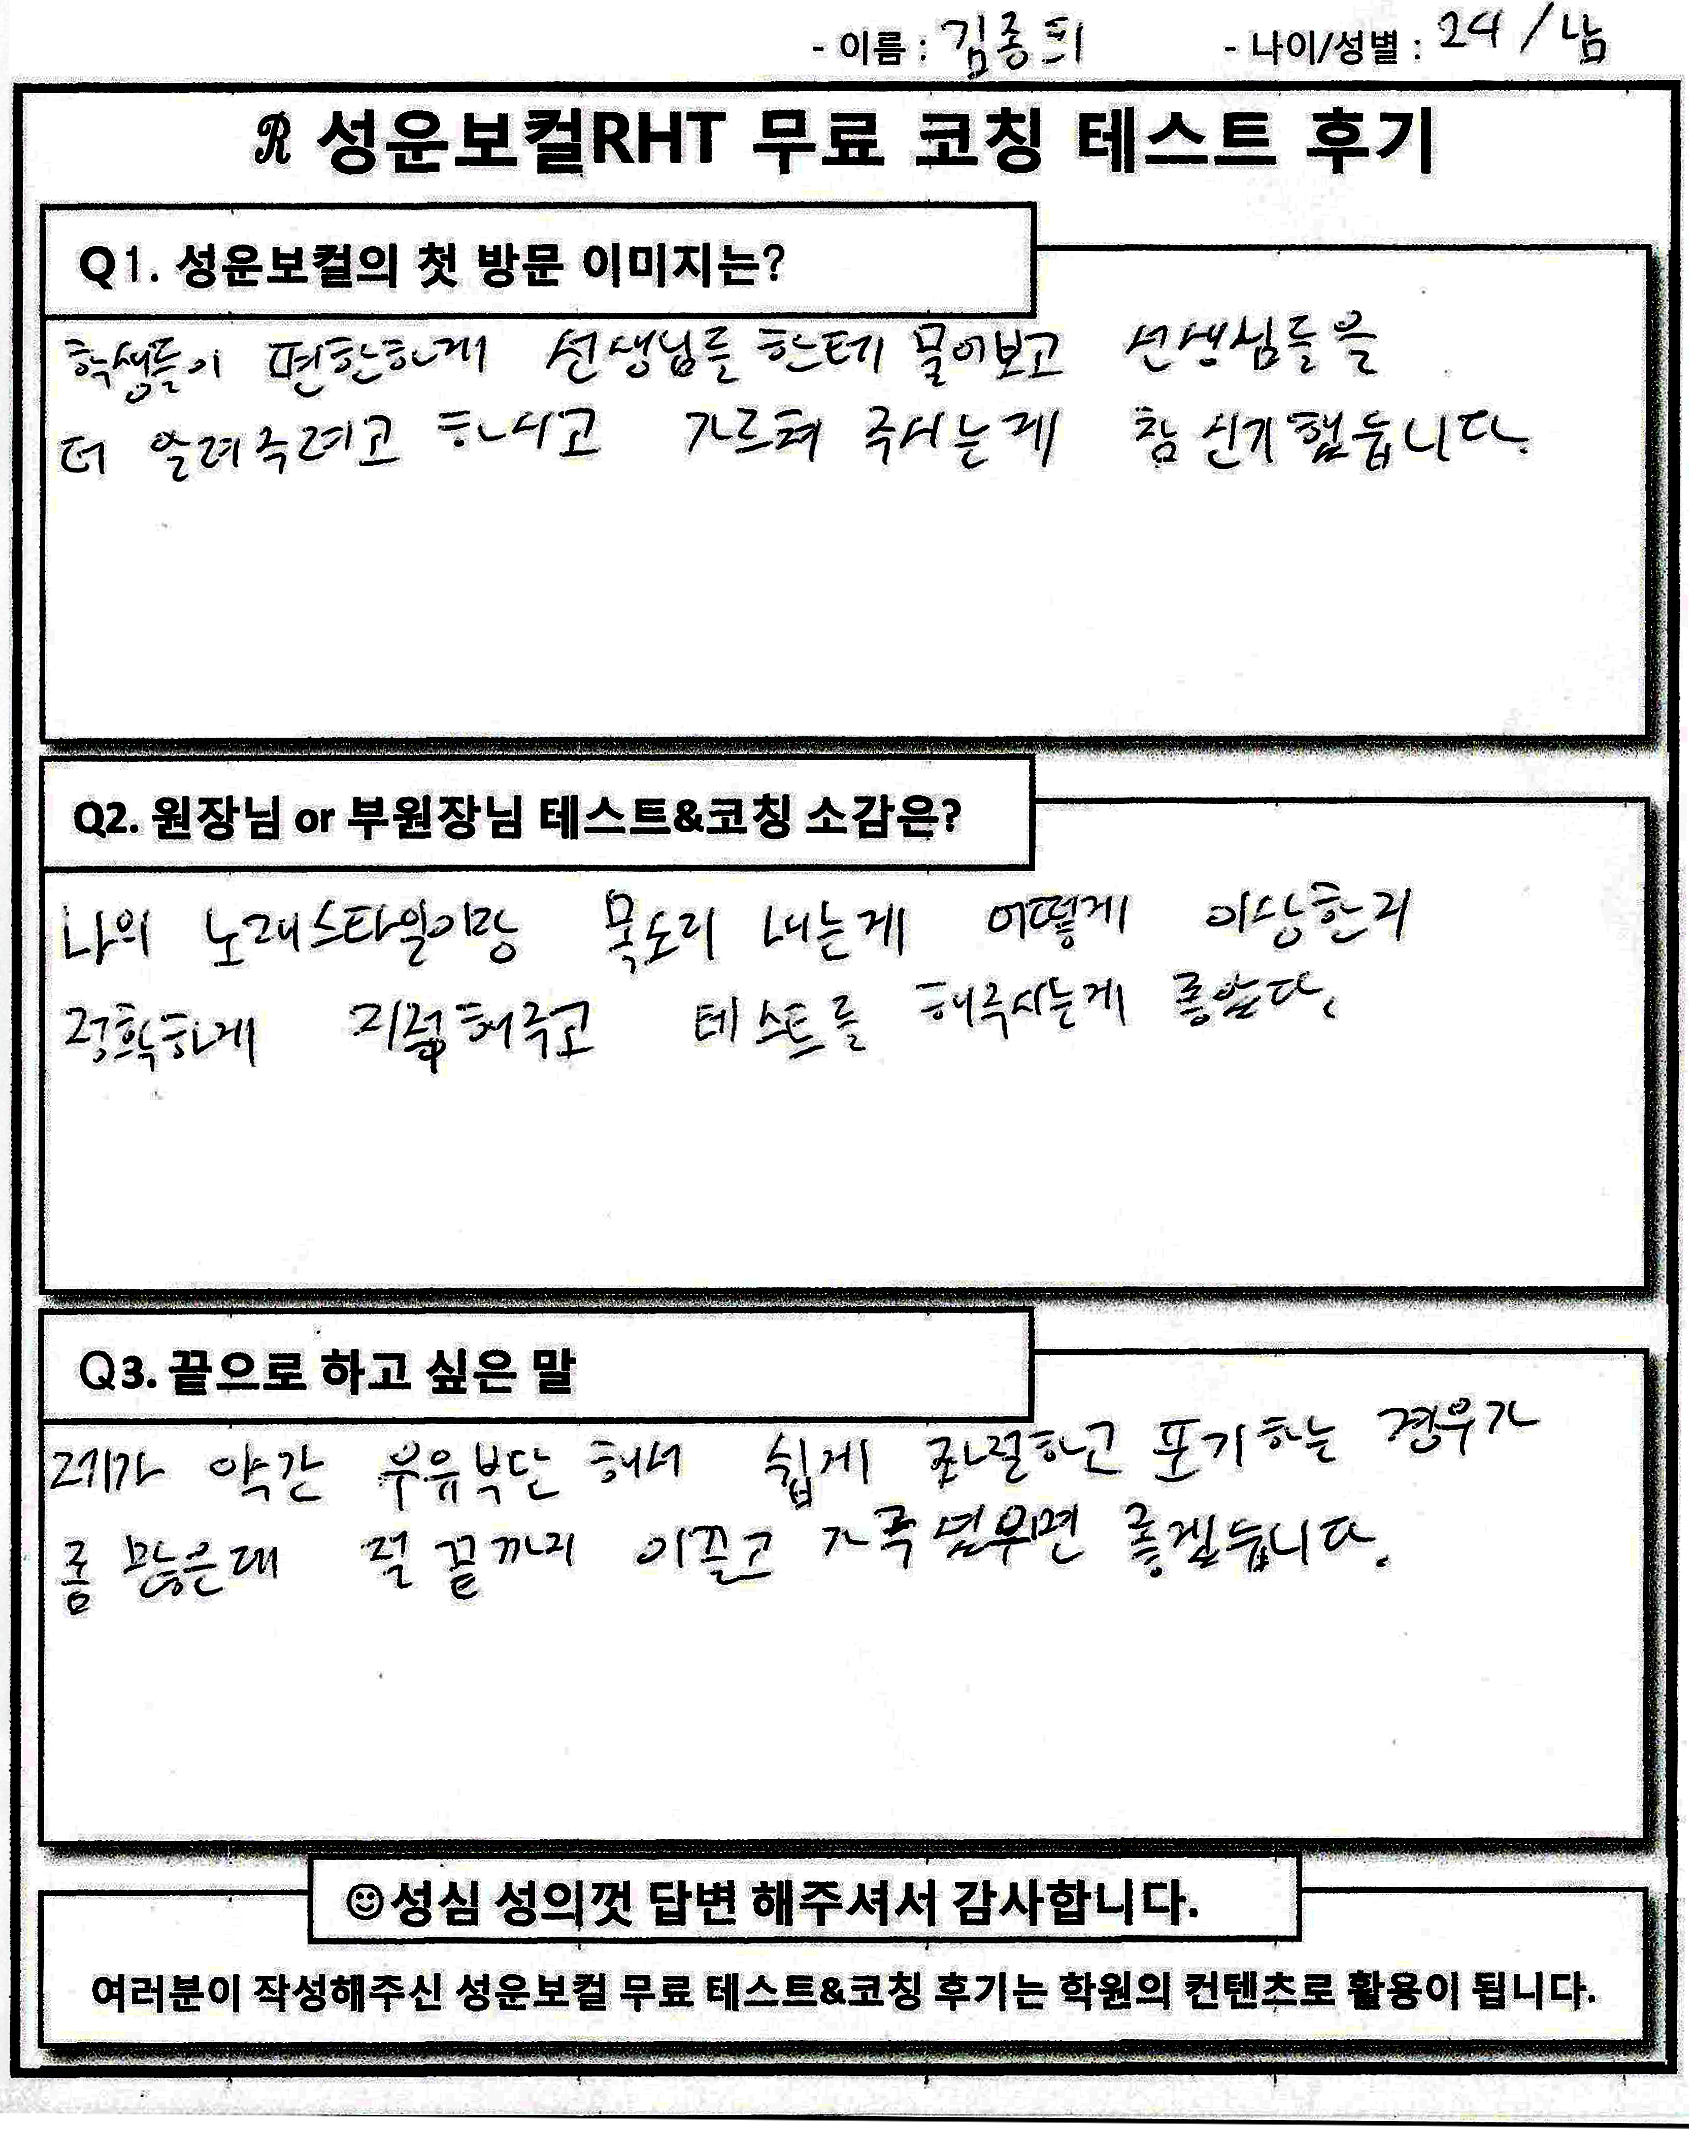 - 이름 : 김종희 - 나이/성별 : 24 / 남
R 성운보컬RHT 무료 코칭 테스트 후기
Q1. 성운보컬의 첫 방문 이미지는?
학생들이 편한하게 선생님들한테 물어보고 선생님들을
더 알려주려고 하시고 가르쳐 주시는게 참 신기했습니다.
Q2. 원장님 or 부원장님 테스트&코칭 소감은?
나의 노래스타일이랑 목소리 내는게 어떻게 이상한지
정확하게 지적해주고 테스트를 해주시는게 좋았다.
Q3. 끝으로 하고 싶은 말
제가 약간 우유부단 해서 쉽게 좌절하고 포기하는 경우가
좀 많은대 절 끝까지 이끌고 가주셨우면 좋겠습니다.
☺성심 성의껏 답변 해주셔서 감사합니다.
여러분이 작성해주신 성운보컬 무료 테스트&코칭 후기는 학원의 컨텐츠로 활용이 됩니다.